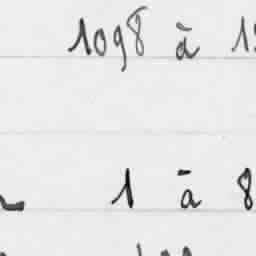 1098 à
1 à 8